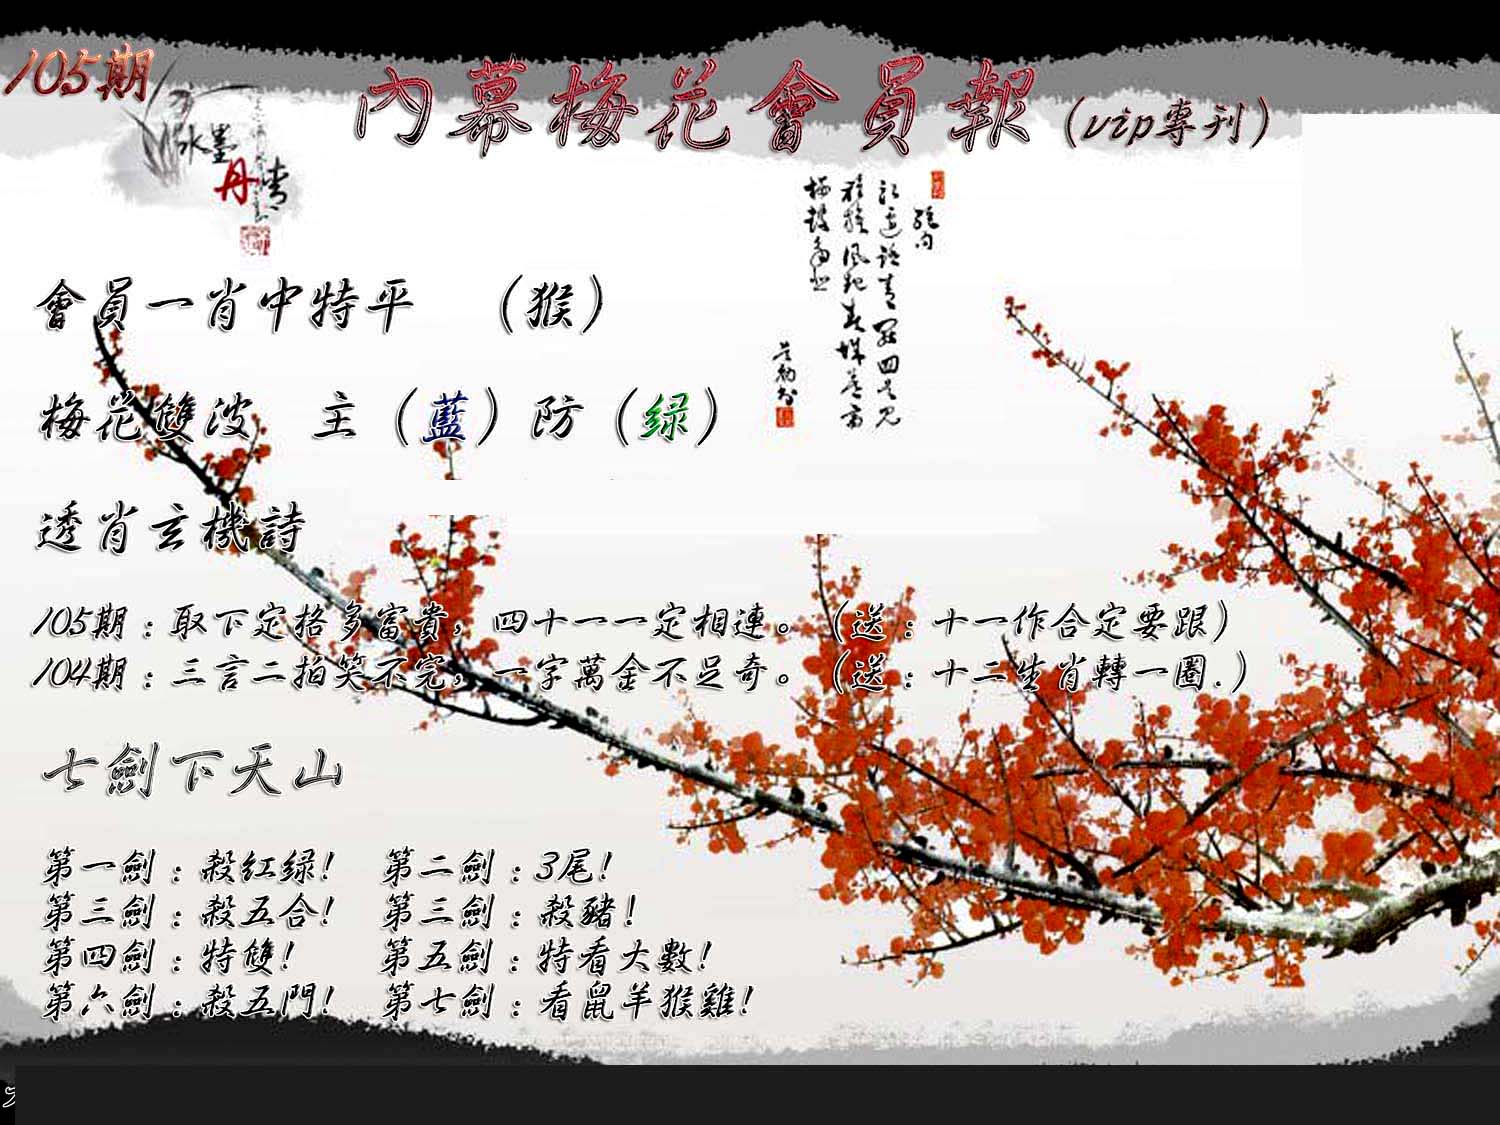 105期
內幕梅花會員報(vip專刊)
水墨
丹青
絕句
會員一肖中特平 (猴)
梅花雙波 主(藍)防(緑)
透肖玄機詩
105期:取下定格多富貴,四十一一定相連。(送:十一作合定要跟)
104期:三言二拍笑不完,一字萬金不足奇。(送:十二生肖轉一圈.)
七劍下天山
第一劍:殺紅緑! 第二劍:3尾!
第三劍:殺五合! 第三劍:殺豬!
第四劍:特雙! 第五劍:特看大數!
第六劍:殺五門! 第七劍:看鼠羊猴雞!